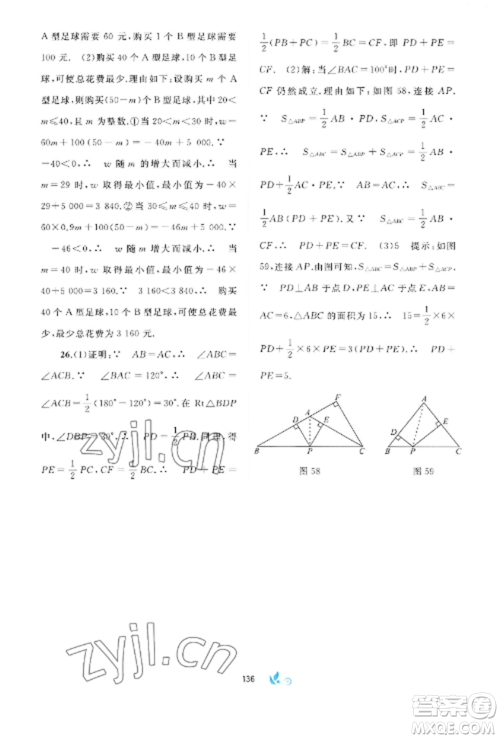 A 型足球需要 60 元,购买 1 个 B 型足球需要
100 元. (2)购买 40 个 A 型足球,10 个 B 型
足球,可使总花费最少.理由如下:设购买 m 个
A 型足球,则购买(50-m)个 B 型足球,29≤
m≤40,且 m 为整数.①当 29≤m<30 时,w=
60m+100(50-m)=-40m+5 000.∵
-40<0,∴ w 随 m 的增大而减小.∴ 当
m=29 时,w 取得最小值,最小值为-40×
29+5 000=3 840.②当 30≤m≤40 时,w=
60×0.9m+100(50-m)=-46m+5 000.∵
-46<0,∴ w 随 m 的增大而减小.∴ 当
m=40 时,w 取得最小值,最小值为-46×
40+5 000=3 160.∵ 3 840>3 160,∴ 购买
40 个 A 型足球,10 个 B 型足球,可使总花费最
少,最少总花费为 3 160 元.
26.(1)证明:∵ AB=AC,∴ ∠ABC=
∠ACB.∵ ∠BAC=120°,∴ ∠ABC=
∠ACB=1/2(180°-120°)=30°.在 Rt△BDP
中,∠DBP=30°,∴ PD=1/2PB.同理,得
PE=1/2PC,CF=1/2BC.∴ PD+PE=
1/2(PB+PC)=1/2BC=CF,即 PD+PE=
CF. (2)解:当∠BAC=100°时,PD+PE=
CF 仍然成立.理由如下:如图 58,连接 AP.
∵ S△ABP=1/2AB·PD,S△ACP=1/2AC·
PE,∴ S△ABP+S△ACP=1/2AB·PD+1/2AC·
PE.∵ AB=AC,∴ S△ABP+S△ACP=
1/2AB(PD+PE).又∵ S△ABC=1/2AB·
CF,S△ABP+S△ACP=S△ABC,∴ 1/2AB(PD+
PE)=1/2AB·CF.∴ PD+PE=CF.
∴ 结论仍然成立. (3)5 提示:如图
59,连接 AP.∴ S△ABP+S△ACP=S△ABC.
∵ PD⊥AB 于点 D,PE⊥AC 于点 E,AB=
AC=6,△ABC 的面积为 15,∴ 1/2×6×
PD+1/2×6×PE=15.∴ 3(PD+
PE)=15.∴ PD+PE=5.
F
A
D
E
B
P
C
图 58
A
D
E
B
P
C
图 59
zyjl.cn
zyjl.cn
136
答案圈